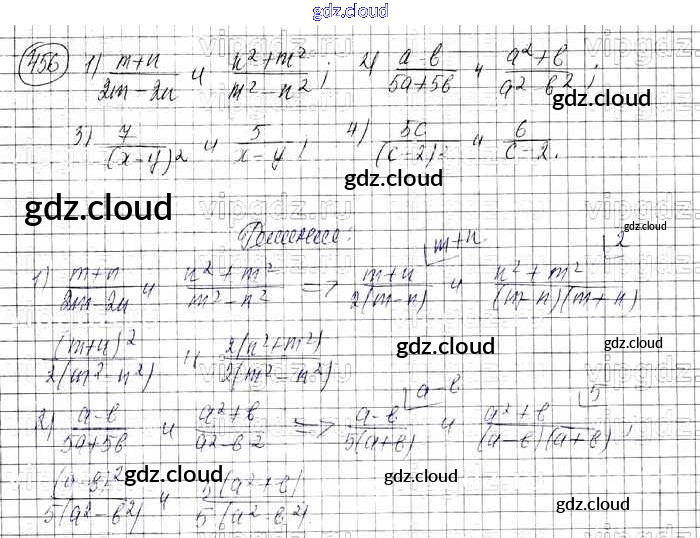 gdz.cloud
456 1) (m+n)/(2m-2n) и (n²+m²)/(m²-n²); 2) (a-b)/(5a+5b) и (a²+b)/(a²-b²);
gdz.cloud
3) 7/(x-y)² и 5/(x-y); 4) 5c/(c-2)² и 6/(c-2).
gdz.cloud gdz.cloud
Решение: gdz.cloud
1) (m+n)/(2m-2n) и (n²+m²)/(m²-n²) => (m+n)/(2(m-n)) ⌊m+n и (n²+m²)/((m-n)(m+n)) ⌊2
(m+n)²/(2(m²-n²)) и 2(n²+m²)/(2(m²-n²))
gdz.cloud gdz.cloud
2) (a-b)/(5a+5b) и (a²+b)/(a²-b²) => (a-b)/(5(a+b)) ⌊a-b и (a²+b)/((a-b)(a+b)) ⌊5;
(a-b)²/(5(a²-b²)) и 5(a²+b)/(5(a²-b²)).
gdz.cloud gdz.cloud gdz.cloud